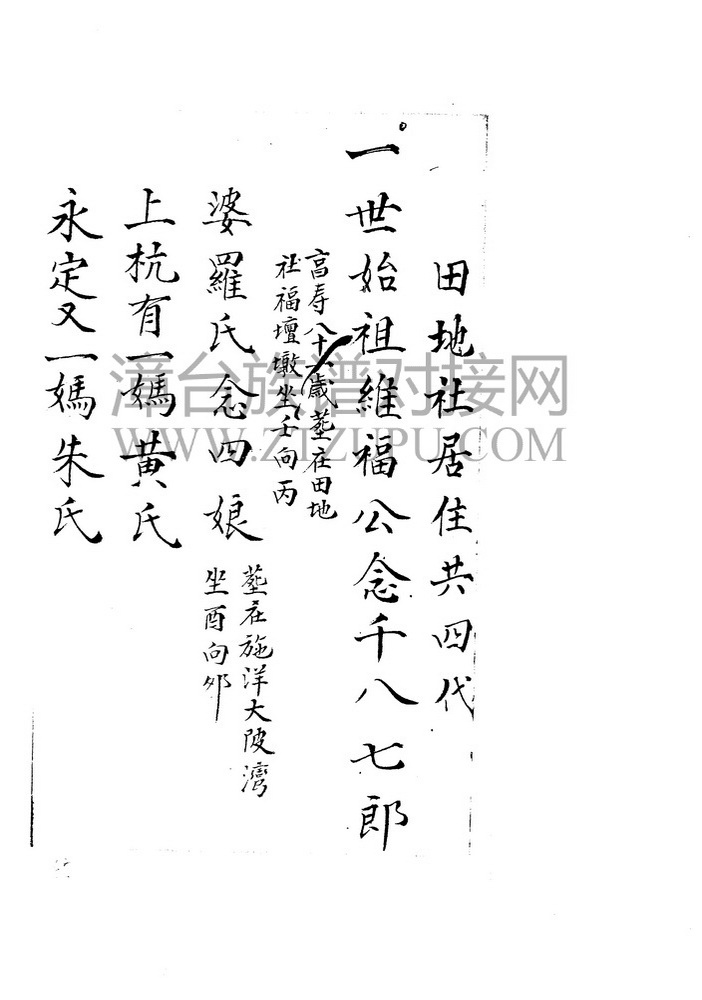 田地社居住共四代
一世始祖維福公念千八七郎
高寿八十歲塟在田地
社福壇墩坐壬向丙
婆羅氏念四娘
塟在施洋大陂灣
坐酉向夘
上杭有一媽黄氏
永定又一媽朱氏
漳台族谱对接网
WWW.ZTZUPU.COM